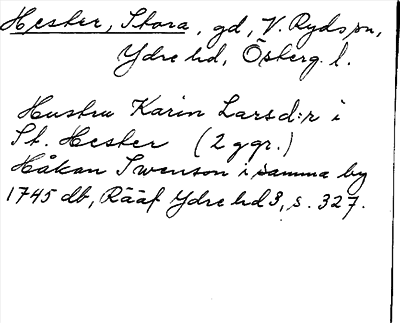 Hester, Stora, gd, V. Ryds sn,
Ydre hd, Österg. l.
Hustru Karin Larsd:r i
St. Hester (2 ggr.)
Håkan Swenson i samma by
1745 db, Rääf Ydre hd 3, s. 327.